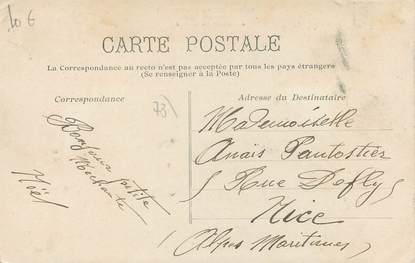 10 €
CARTE POSTALE
La Correspondance au recto n'est pas acceptée par tous les pays étrangers
(Se renseigner à la Poste)
Correspondance
Adresse du Destinataire
73
Bonjour petite
Méchante
Noël
Mademoiselle
Anaïs
Rue Defly
Nice
(Alpes Maritimes)